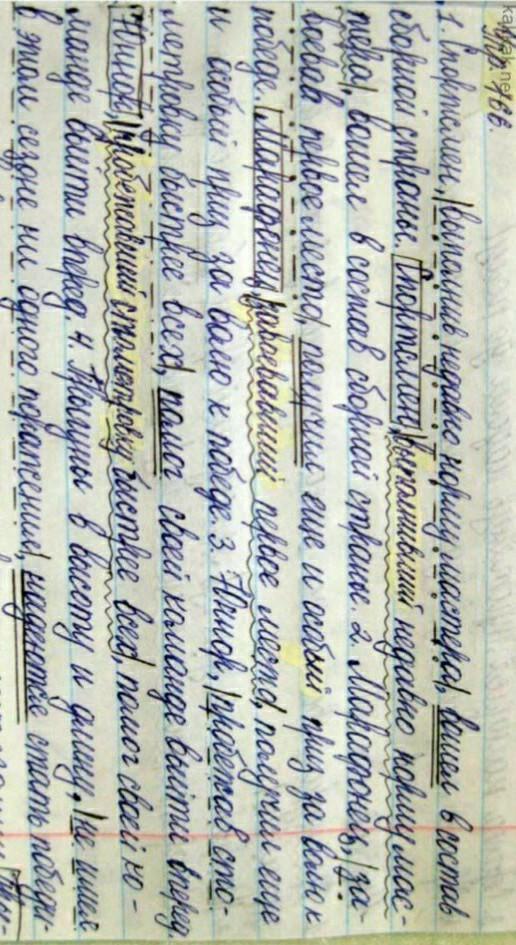 kakrak.net
Упр. 166.
1. Спортсмен, выполнив недавно норму мастера, вошел в состав
сборной страны. Спортсмен, выполнивший недавно норму мас-
тера, вошел в состав сборной страны. 2. Марафонец, за-
воевав первое место, получил еще и особый приз за волю к
победе. Марафонец, завоевавший первое место, получил еще
и особый приз за волю к победе. 3. Юнион, пробежав сто-
метровку быстрее всех, помог своей команде выйти вперед.
Юнион, пробежавший стометровку быстрее всех, помог своей ко-
манде выйти вперед. 4. Прыгуны в высоту и длину, не имея
в этом сезоне ни одного поражения, надеются стать победи-